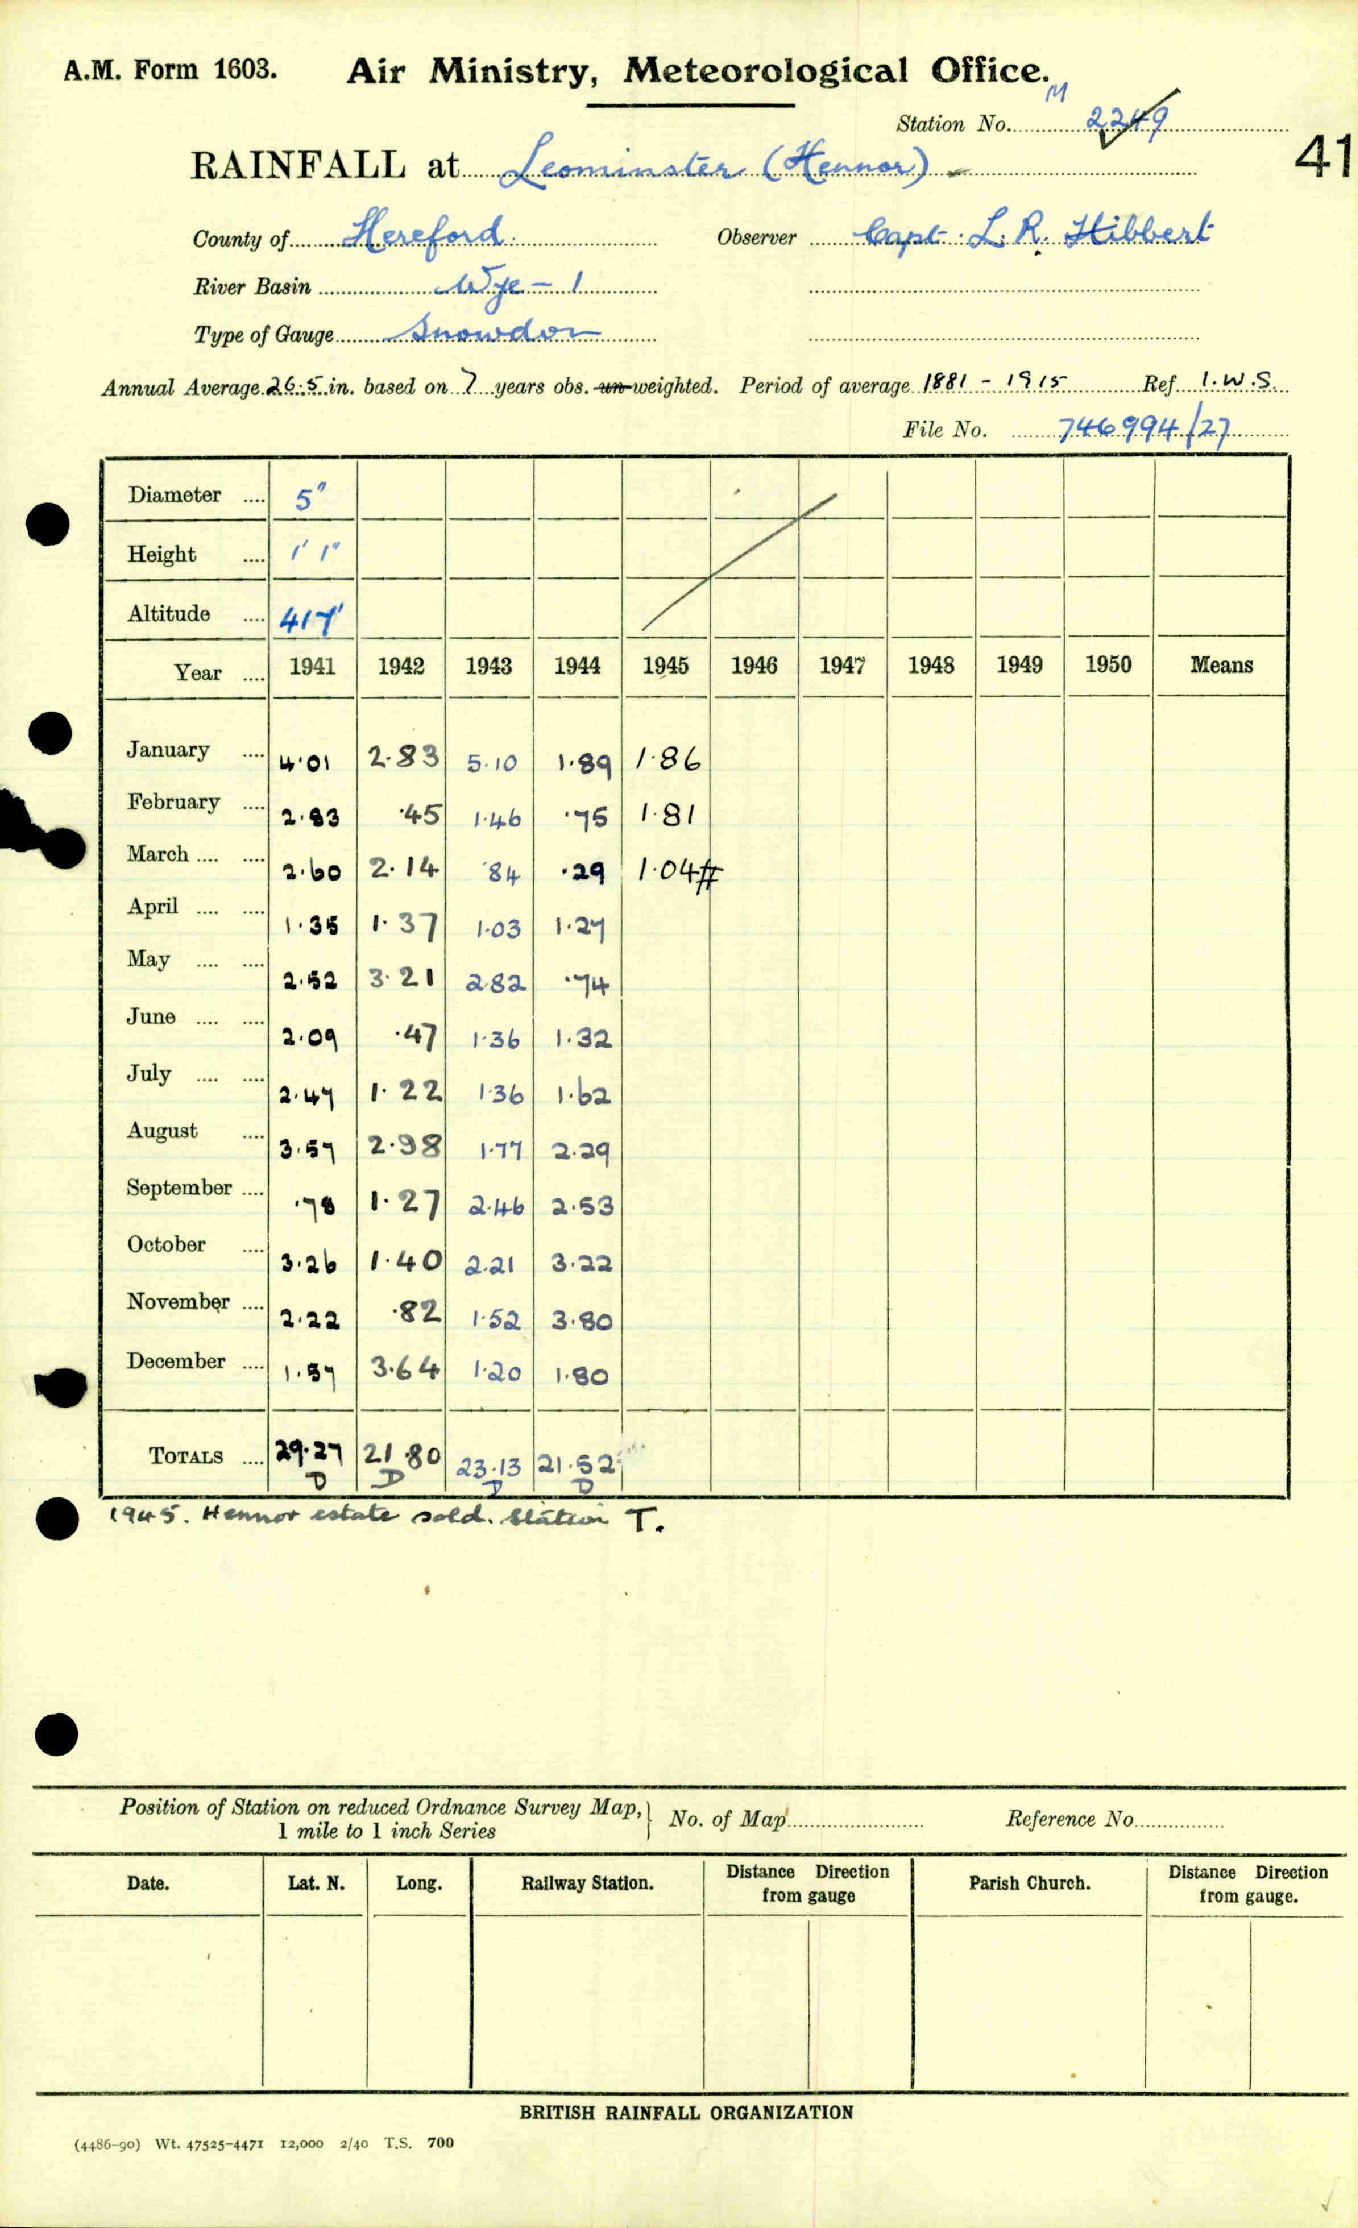 A.M. Form 1603. Air Ministry, Meteorological Office.
Station No. M 2249
41
RAINFALL at Leominster (Hennor)
County of Hereford Observer Capt. L. R. Hibbert
River Basin Wye - 1
Type of Gauge Snowdon
Annual Average 26.5 in. based on 7 years obs. un-weighted. Period of average 1881 - 1915 Ref. I.W.S.
File No. 746994/27
Diameter .... 5"
Height .... 1' 1"
Altitude .... 417'
Year .... 1941 1942 1943 1944 1945 1946 1947 1948 1949 1950 Means
January .... 4.01 2.83 5.10 1.89 1.86
February .... 2.83 .45 1.46 .75 1.81
March .... .... 2.60 2.14 .84 .29 1.04#
April .... .... 1.35 1.37 1.03 1.27
May .... .... 2.52 3.21 2.82 .74
June .... .... 2.09 .47 1.36 1.32
July .... .... 2.47 1.22 1.36 1.62
August .... 3.57 2.98 1.77 2.29
September .... .78 1.27 2.46 2.53
October .... 3.26 1.40 2.21 3.22
November .... 2.22 .82 1.52 3.80
December .... 1.57 3.64 1.20 1.80
TOTALS .... 29.27 21.80 23.13 21.52
D D D D
1945. Hennor estate sold. Station T.
Position of Station on reduced Ordnance Survey Map, } No. of Map Reference No.
1 mile to 1 inch Series
Date. Lat. N. Long. Railway Station. Distance Direction from gauge Parish Church. Distance Direction from gauge.
BRITISH RAINFALL ORGANIZATION
(4486-90) Wt. 47525-4471 12,000 2/40 T.S. 700